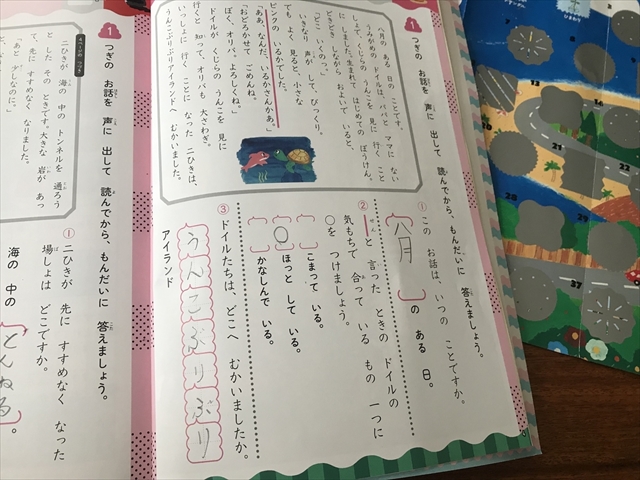 1
つぎの お話を 声に 出して 読んでから、もんだいに 答えましょう。
八月の ある 日の ことです。
うみがめの ドイルは、パパと ママに ない
しょで、くじらの うんこを 見に 行く こと
に しました。生まれて はじめての ぼうけん。
どきどき しながら およいで いると、
「どこ いくのっ。」
いきなり 声が して、びっくり。
でも よく 見ると、小さな
ピンクの いるかでした。
「ああ、なんだ、いるかさんかあ。」
「おどろかせて ごめんね。
ぼく、オリバ。よろしくね。」
ドイルが くじらの うんこを 見に
行くと 知って、オリバも 大よわぎ。
いっしょに 行く ことに なった 二ひきは、
うんこぶりぶりアイランドへ むかいました。
① この お話は、いつの ことですか。
八月 の ある 日。
② ーと 言った ときの ドイルの
気もちで 合って いる もの 一つに
○を つけましょう。
こまって いる。
○ ほっと して いる。
かなしんで いる。
③ ドイルたちは、どこへ むかいましたか。
うんこぶりぶり
アイランド
1
つぎの お話を 声に 出して 読んでから、もんだいに 答えましょう。
二ひきが 海の 中の トンネルを 通ろう
と した その ときです。大きな 岩が あっ
て、先に すすめなく なりました。
「あと 少しなのに。」
① 二ひきが 先に すすめなく なった
場しょは どこですか。
海の 中の とんねる。
13
20
28
29
37